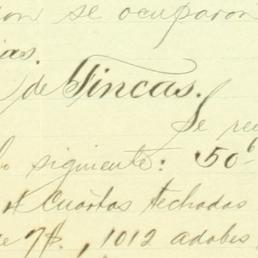 se ocuparon
as.
de Fincas.
Se re
lo siguiente: 50
cuartos techados
de 7 , 1012 adobes